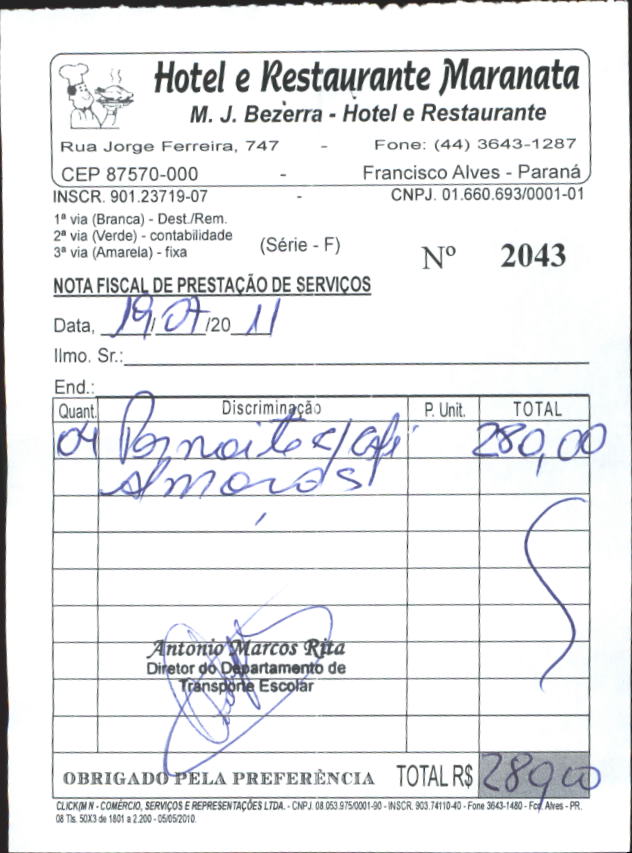 Hotel e Restaurante Maranata
M. J. Bezerra - Hotel e Restaurante
Rua Jorge Ferreira, 747 - Fone: (44) 3643-1287
CEP 87570-000 - Francisco Alves - Paraná
INSCR. 901.23719-07 - CNPJ. 01.660.693/0001-01
1ª via (Branca) - Dest./Rem.
2ª via (Verde) - contabilidade
3ª via (Amarela) - fixa
(Série - F)
Nº 2043
NOTA FISCAL DE PRESTAÇÃO DE SERVIÇOS
Data, 19/07/2011
Ilmo. Sr.:
End.:
Quant. Discriminação P. Unit. TOTAL
04 Pernoite c/ café 280,00
Almoços
Antonio Marcos Rita
Diretor do Departamento de
Transporte Escolar
OBRIGADO PELA PREFERÊNCIA TOTAL R$ 280,00
CLICK(M N - COMÉRCIO, SERVIÇOS E REPRESENTAÇÕES LTDA. - CNPJ. 08.053.975/0001-90 - INSCR. 903.74110-40 - Fone 3643-1480 - Fco. Alves - PR.
08 Tls. 50X3 de 1801 a 2.200 - 05/05/2010.